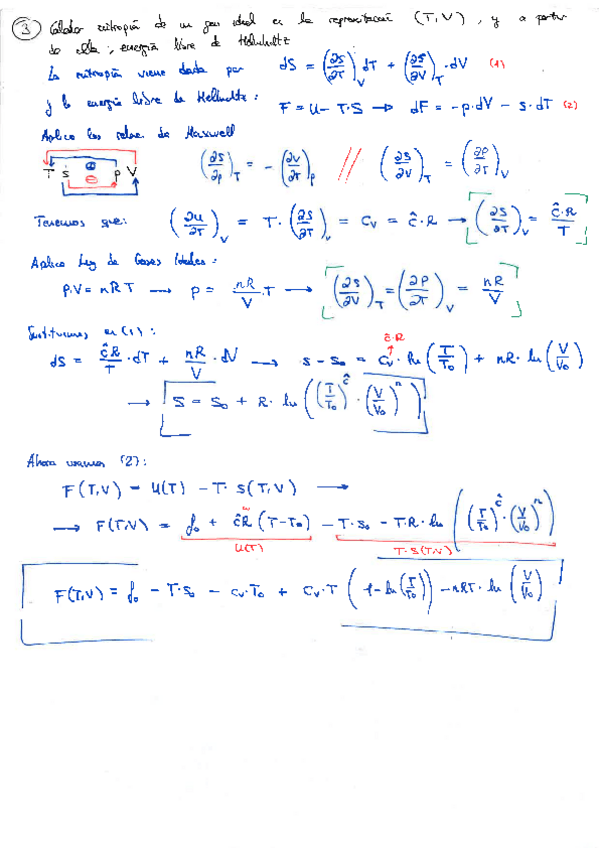 ③ Calcular entropía de un gas ideal en la representación (T,V), y a partir
de ella, energía libre de Helmholtz
La entropía viene dada por dS = (∂S/∂T)_V dT + (∂S/∂V)_T · dV (1)
y la energía libre de Helmholtz: F = U - T·S → dF = -p·dV - S·dT (2)
Aplico las relac. de Maxwell
T S ⊕ ⊖ p V (∂S/∂p)_T = -(∂V/∂T)_p // (∂S/∂V)_T = (∂P/∂T)_V
Tenemos que: (∂U/∂T)_V = T·(∂S/∂T)_V = C_V = ĉ·R → (∂S/∂T)_V = ĉ·R/T
Aplico Ley de Gases Ideales:
P.V = nRT → p = nR/V · T → (∂S/∂V)_T = (∂P/∂T)_V = nR/V
Sustituimos en (1):
ĉ·R
dS = ĉR/T · dT + nR/V · dV → S - S₀ = C_V · ln(T/T₀) + nR · ln(V/V₀)
→ S = S₀ + R · ln((T/T₀)^ĉ · (V/V₀)^n)
Ahora usamos (2):
F(T,V) = U(T) - T· S(T,V) →
→ F(T,V) = f₀ + ĉR (T-T₀) - T·S₀ - T·R · ln((T/T₀)^ĉ · (V/V₀)^n)
U(T) T·S(T,V)
F(T,V) = f₀ - T·S₀ - C_V·T₀ + C_V·T (1-ln(T/T₀)) - nRT · ln(V/V₀)